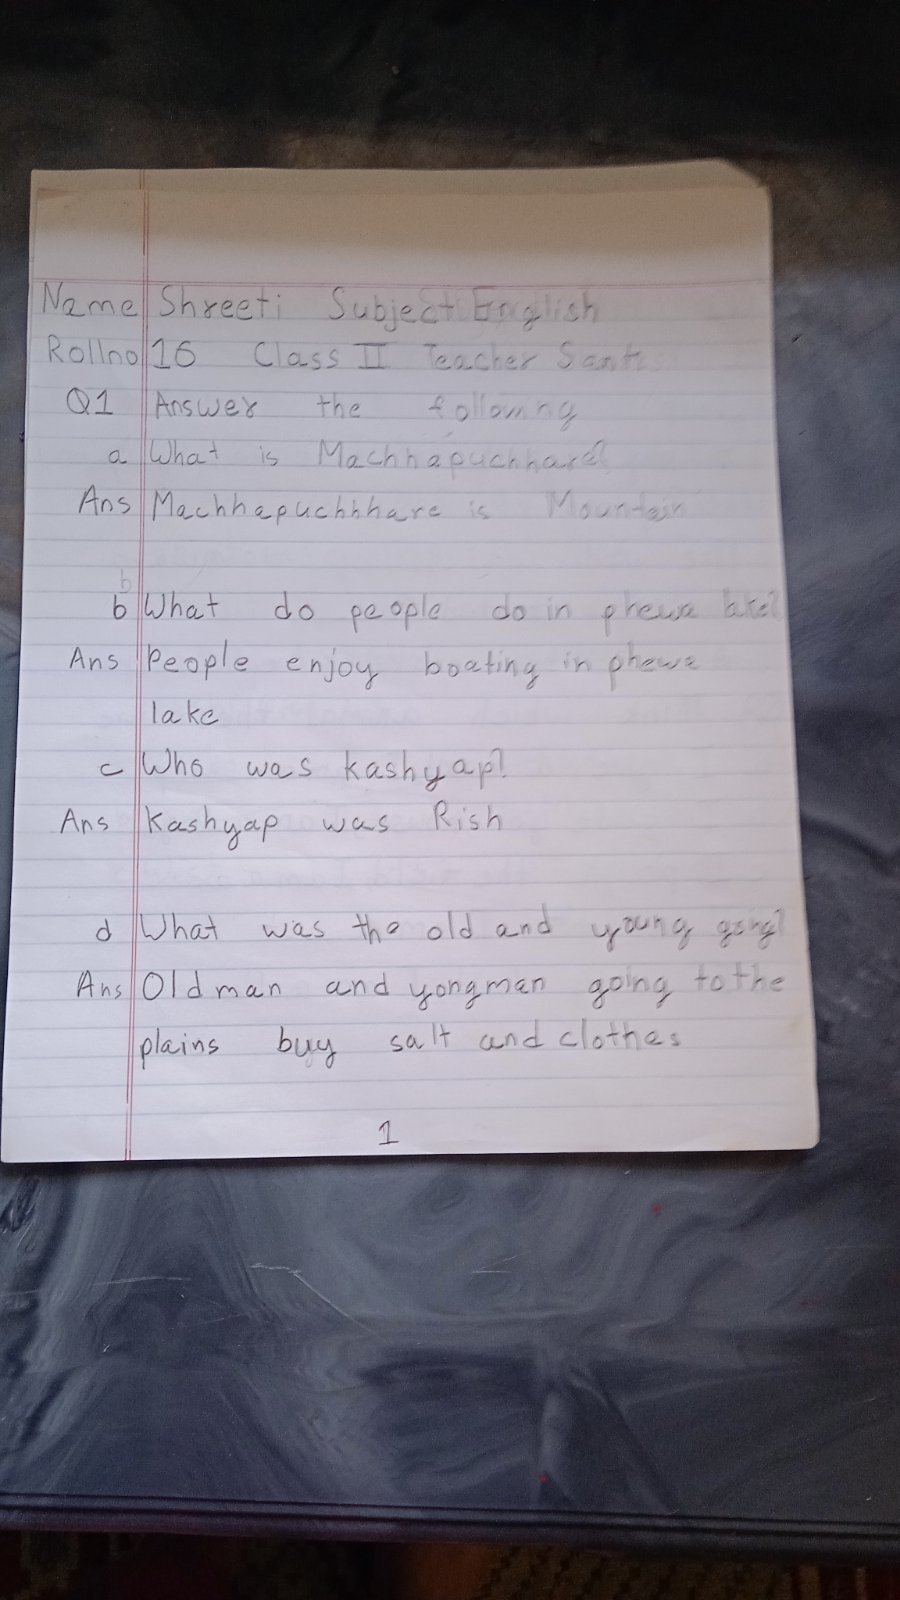 Name Shreeti Subject English
Rollno 16 Class II Teacher
Q1 Answer the following
a What is Machhapuchhare?
Ans Machhapuchhhare is Mountain
b
b What do people do in phewa lake?
Ans People enjoy boating in phewa
lake
c Who was kashyap?
Ans Kashyap was Rish
d What was the old and young
Ans Old man and yongman going to the
plains buy salt and clothes
1